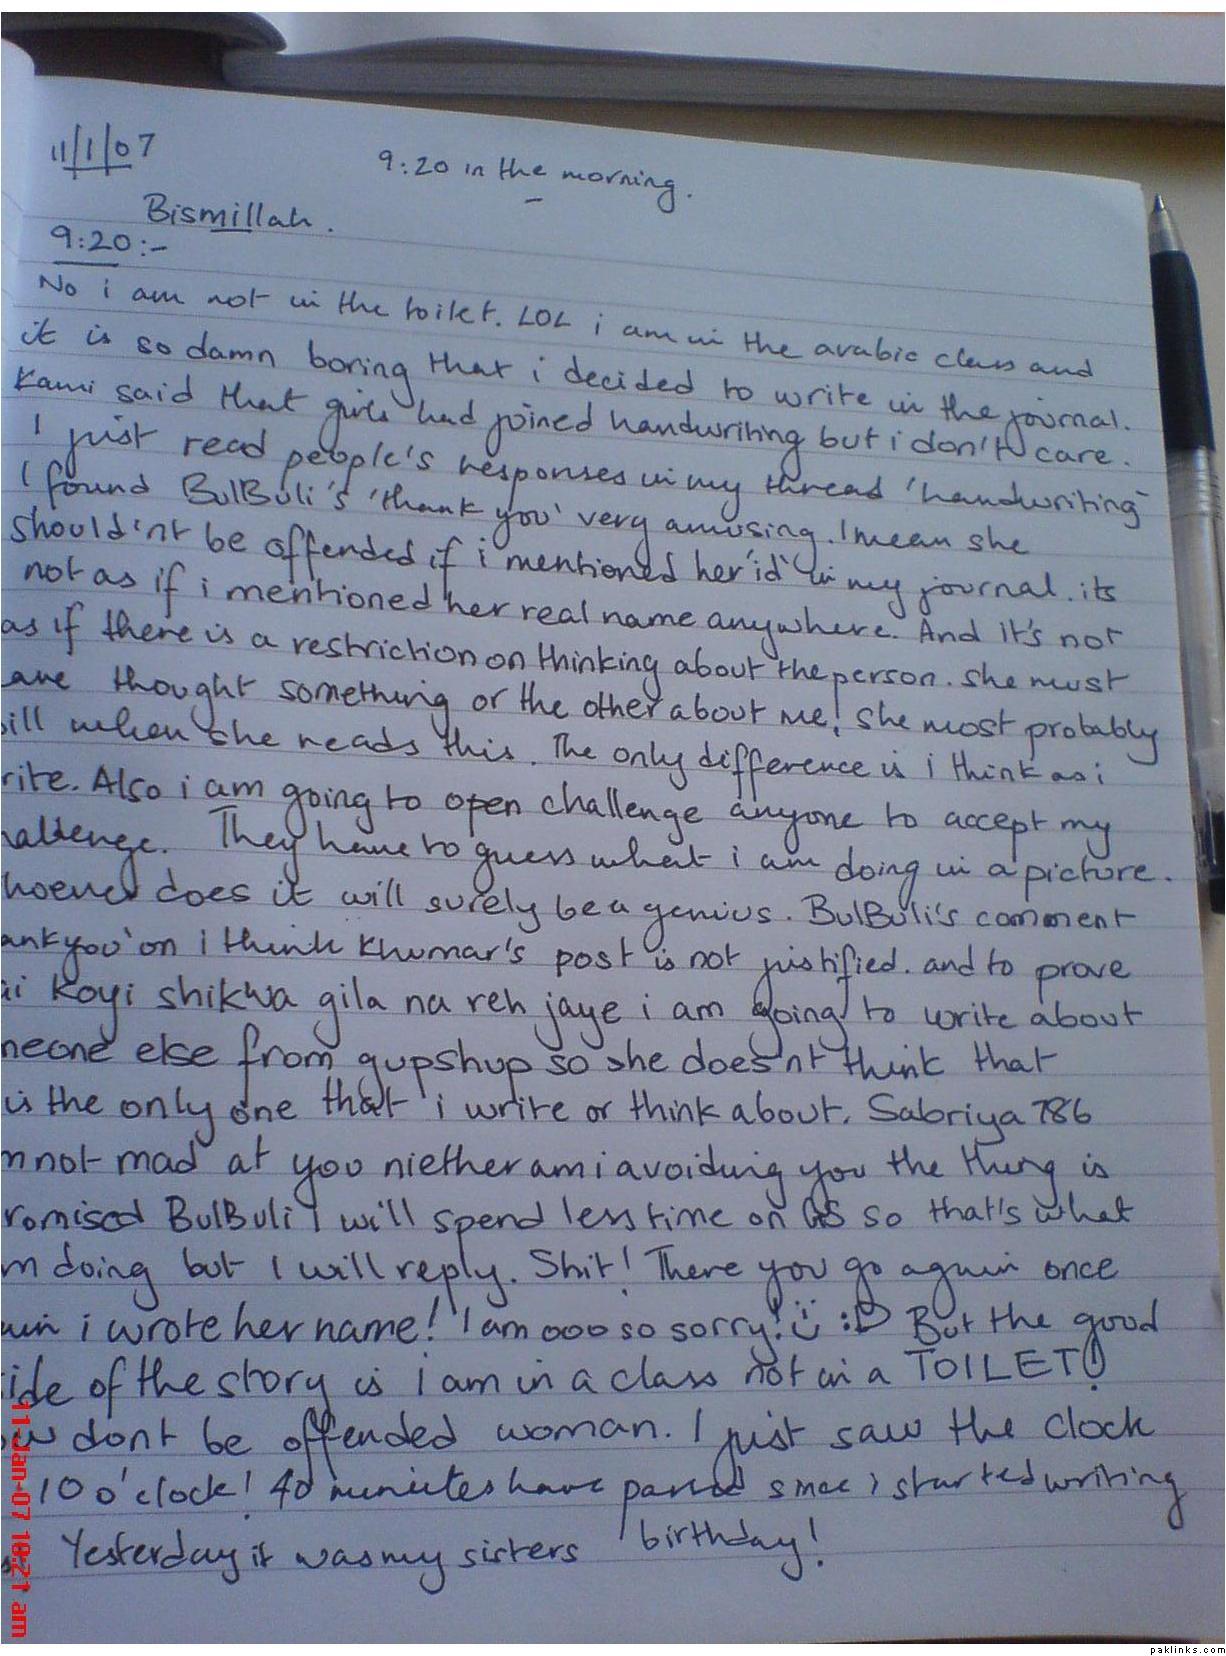 11/1/07
9:20 in the morning.
Bismillah.
9:20:-
No i am not in the toilet. LOL i am in the arabic class and
it is so damn boring that i decided to write in the journal.
Kami said that girls had joined handwriting but i don't care.
I just read people's responses in my thread 'handwriting'
I found BulBuli's 'thank you' very amusing. I mean she
should'nt be offended if i mentioned her 'id' in my journal. its
not as if i mentioned her real name anywhere. And it's not
as if there is a restriction on thinking about the person. she must
ave thought something or the other about me, she most probably
ill when she reads this. The only difference is i think as i
rite. Also i am going to open challenge anyone to accept my
hallenge. They have to guess what i am doing in a picture.
hoever does it will surely be a genius. BulBuli's comment
ank you' on i think Khumar's post is not justified. and to prove
ai koyi shikwa gila na reh jaye i am going to write about
meone else from gupshup so she does'nt think that
is the only one that i write or think about. Sabriya 786
m not mad at you niether am i avoiding you the thing is
romised BulBuli I will spend less time on GS so that's what
m doing but I will reply. Shit! There you go again once
ain i wrote her name! I am ooo so sorry! :D But the good
ide of the story is i am in a class not in a TOILET!
ow dont be offended woman. I just saw the clock
10 o'clock! 40 minutes have passed since i started writing
s Yesterday it was my sisters birthday!
11-Jan-07 10:21 am
paklinks.com